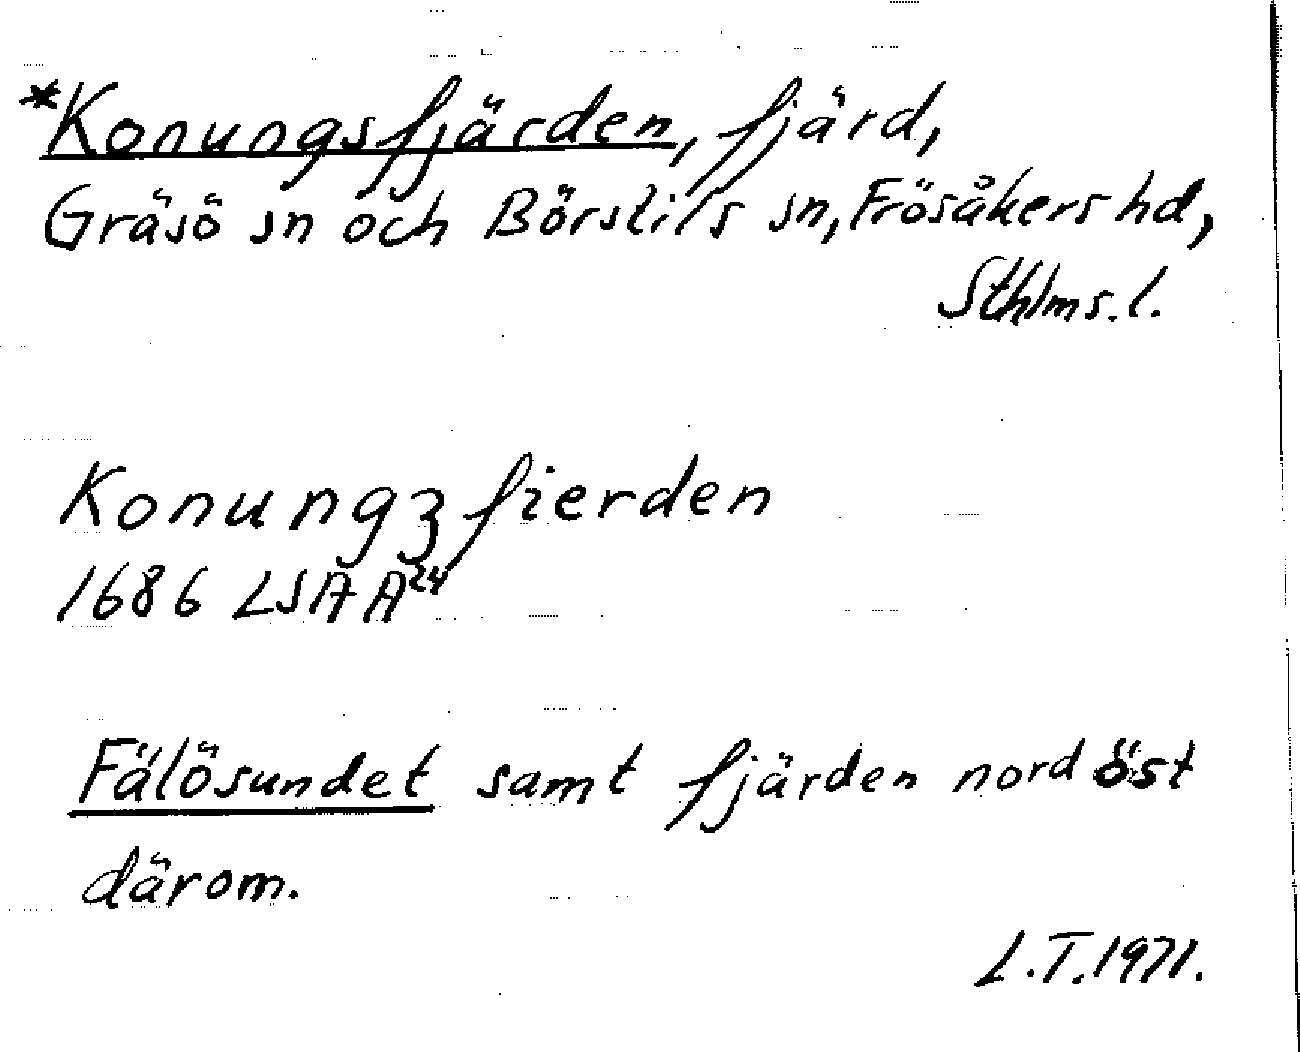 *Konungsfjärden, fjärd,
Gräsö sn och Börstils sn, Frösåkers hd,
Sthlms. l.
Konungzfierden
1686 LSA A²⁴
Fälösundet samt fjärden nordöst
därom.
L.T. 1971.